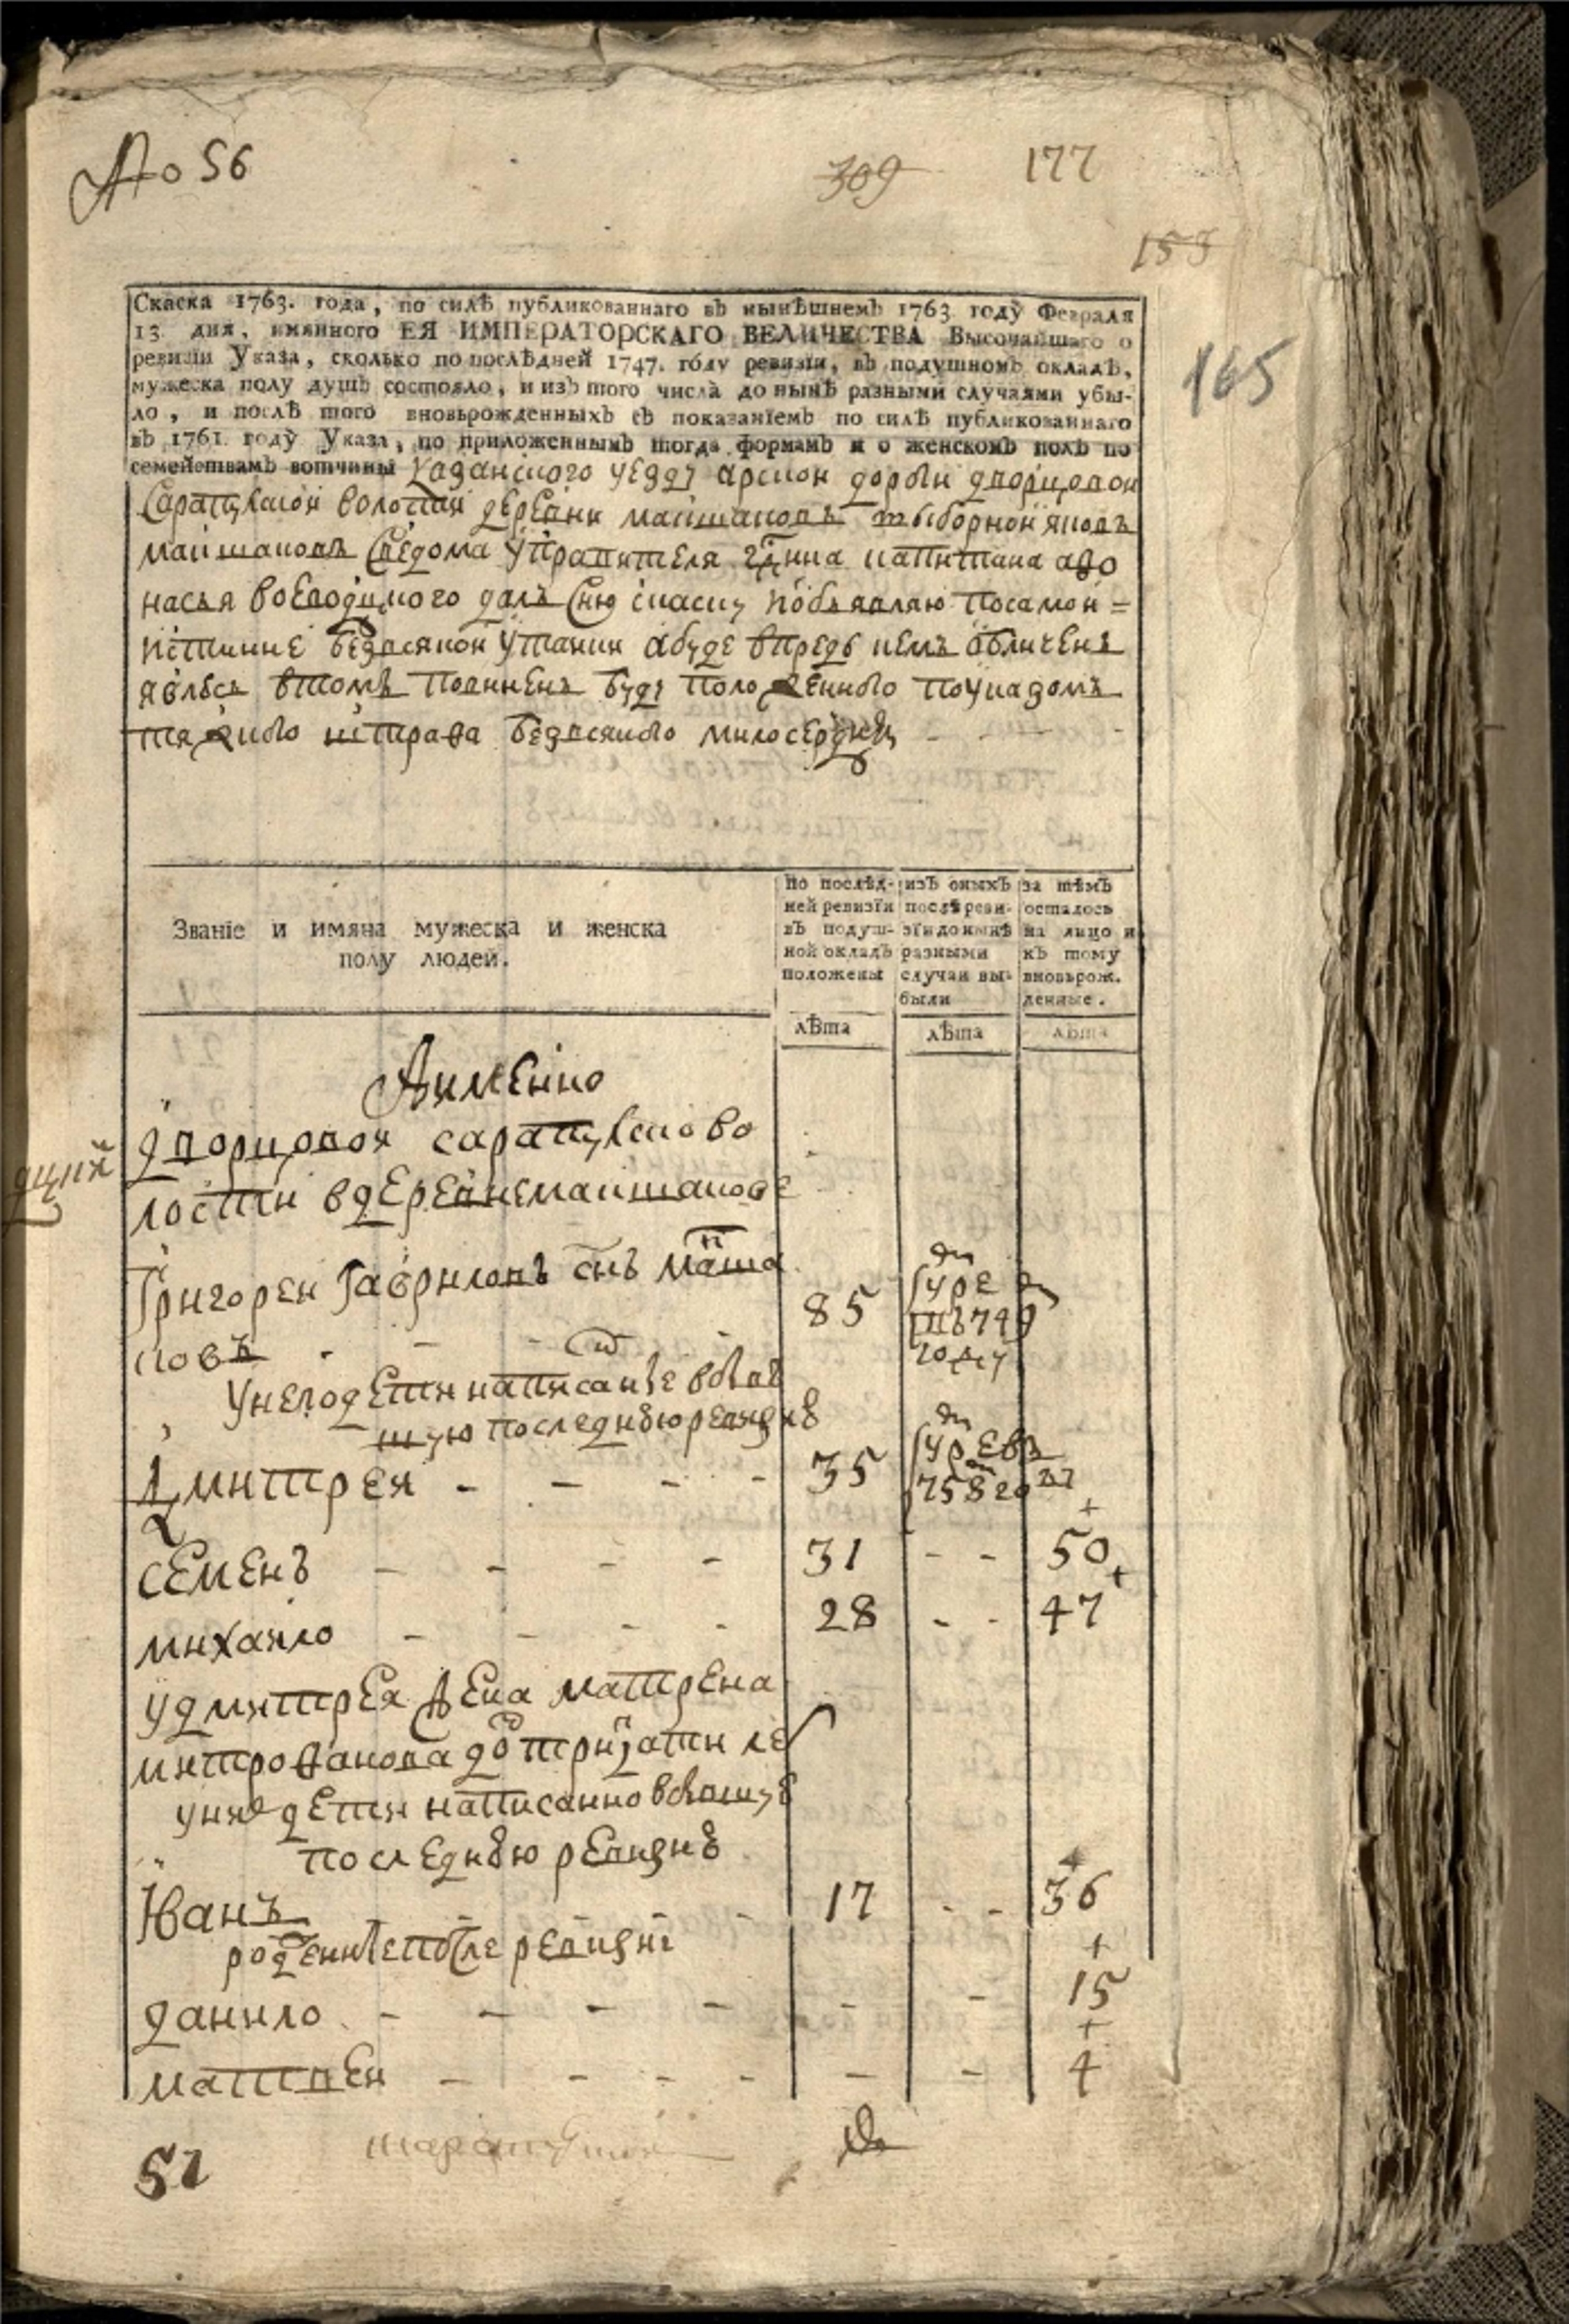 № 56
309
177
153
165
Скаска 1763. года, по силѣ публикованнаго въ нынѣшнемъ 1763 году Февраля
13 дня, имянного ЕЯ ИМПЕРАТОРСКАГО ВЕЛИЧЕСТВА Высочайшаго о
ревизіи Указа, сколько по послѣдней 1747. году ревизіи, въ подушномъ окладѣ,
мужеска полу душъ состояло, и изъ того числа до нынѣ разными случаями убы-
ло, и послѣ того вновьрожденныхъ съ показаніемъ по силѣ публикованнаго
въ 1761. году Указа, по приложеннымъ тогда формамъ и о женскомъ полѣ по
семействамъ вотчины казанского уезду арской дороги дворцовой
Сарапулской волости деревни маишаковъ выборной яковъ
маишаковъ Сведома управителя гдна капитана афо
насья воеводцкого далъ Сию скаску Iобъявляю посамой =
истинне безвсякой утаики абуде впредь кемъ обличенъ
явлюсь втомъ повиненъ буду положенного поуказомъ
тяжкого истрафа безвсякого милосердия
Званіе и имяна мужеска и женска
полу людей.
по послѣд-
ней ревизїи
въ подуш-
ной окладъ
положены
изъ оныхъ
послѣ реви-
зїи до нынѣ
разными
случаи вы-
были
за тѣмъ
осталось
на лицо и
къ тому
вновьрож.
денные.
лѣта
лѣта
лѣта
Аимённо
дворцовой сарапулскои во
лости вдеревнемаишакове
Григореи Гавриловъ снъ маиша
ковъ - - - 85 умре въ 749 году
Унегодети написаные вбыв
шую последнюю ревизию
Дмитреи - - - - 35 умре в 758 году
семенъ - - - - 31 - - 50
михаило - - - - 28 - - 47
удмитрея жена матрена
митрофанова дотритцати ле
уняе дети написанно вбывшую
последнюю ревизию
Иванъ - - - 17 - - 36
рожденные после ревизии
данило - - - - - - 15
матвеи - - - - - - 4
51